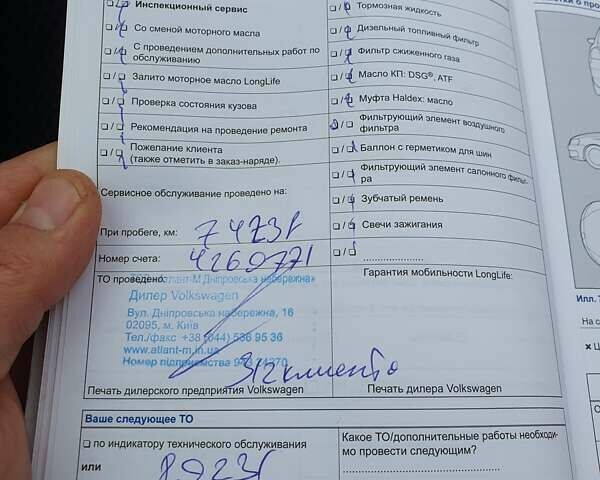 Инспекционный сервис
Со сменой моторного масла
С проведением дополнительных работ по
обслуживанию
Залито моторное масло LongLife
Проверка состояния кузова
Рекомендация на проведение ремонта
Пожелание клиента
(также отметить в заказ-наряде).
Сервисное обслуживание проведено на:
При пробеге, км: 74231
Номер счета: 4260771
ТО проведено:
Атлант-М Дніпровська набережна»
Дилер Volkswagen
Вул. Дніпровська набережна, 16
02095, м. Київ
Тел./факс +38 (044) 536 95 36
www.atlant-m.in.ua
Номер підприємства
Печать дилерского предприятия Volkswagen
Тормозная жидкость
Дизельный топливный фильтр
Фильтр сжиженого газа
Масло КП: DSG®, ATF
Муфта Haldex: масло
Фильтрующий элемент воздушного
фильтра
Баллон с герметиком для шин
Фильтрующий элемент салонного фильт-
ра
Зубчатый ремень
Свечи зажигания
Гарантия мобильности LongLife:
Печать дилера Volkswagen
Ваше следующее ТО
по индикатору технического обслуживания
или
Какое ТО/дополнительные работы необходи-
мо провести следующим?
Илл.